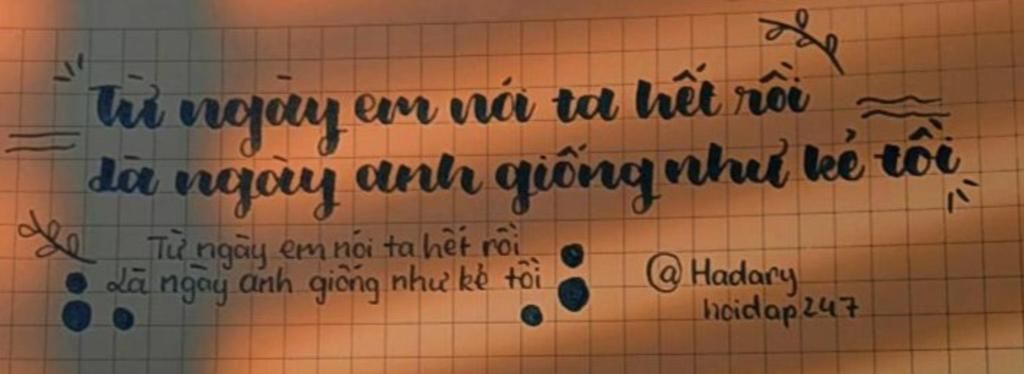 Từ ngày em nói ta hết rồi
Là ngày anh giống như kẻ tồi
Từ ngày em nói ta hết rồi
Là ngày anh giống như kẻ tồi
@Hadary
hoidap247